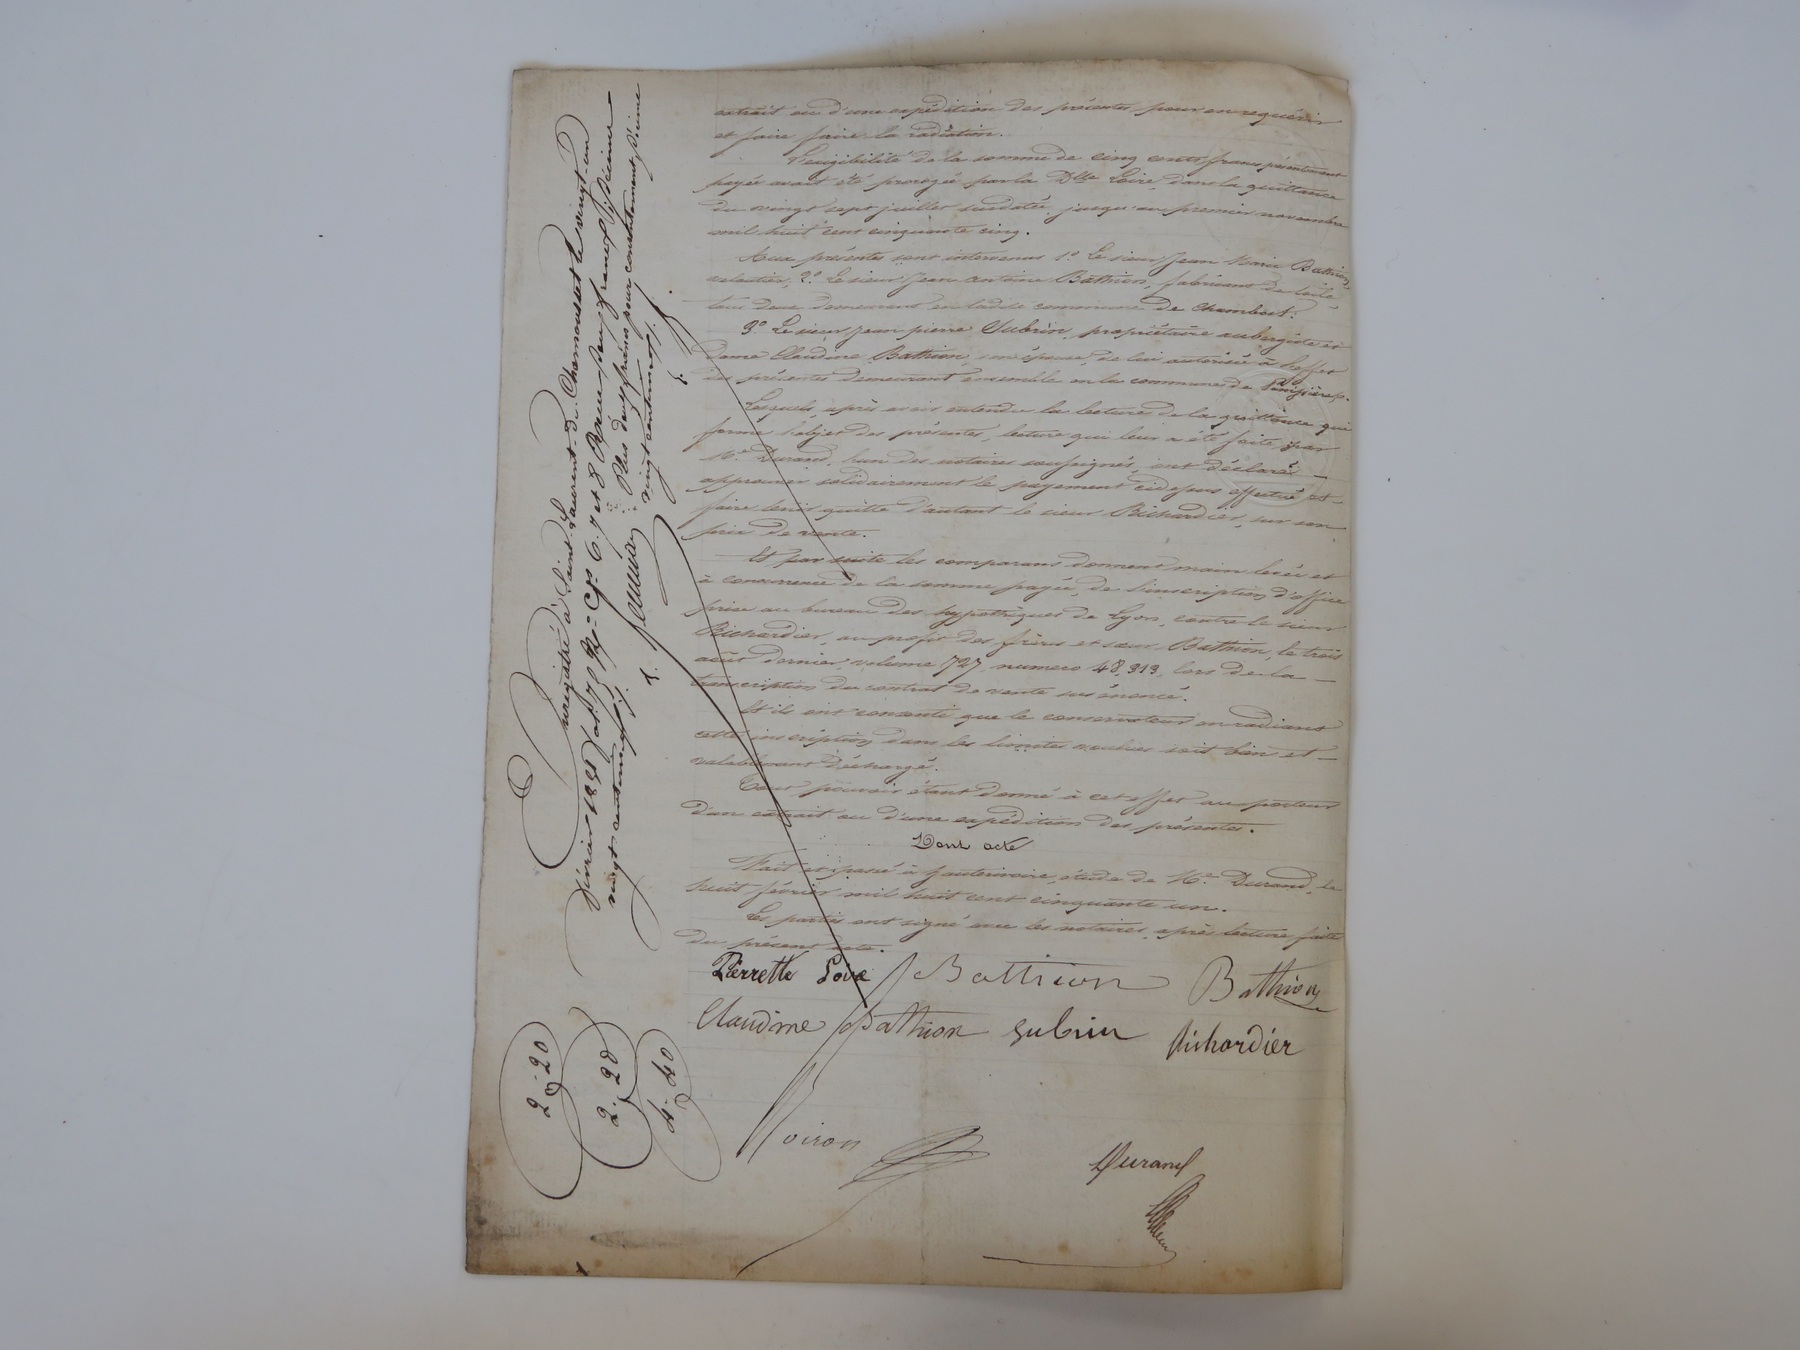 extrait ou d'une expédition des présentes pour en requérir
et faire faire la radiation.
L'exigibilité de la somme de cinq cents francs présentement
payée avait été prorogée par la Dlle Loire, dans la quittance
du vingt sept juillet susdatée, jusqu'au premier novembre
mil huit cent cinquante cinq.
Aux présentes sont intervenus 1º Le sieur Jean Marie Bathion,
veloutier, 2º Le sieur Jean Antoine Bathion, fabricant de toile
tous deux demeurant en ladite commune de Chambost.
3º Le sieur Jean pierre Subrin, propriétaire aubergiste et
dame Claudine Bathion, son épouse, de lui autorisée à l'effet
des présentes demeurant ensemble en la commune de
Lesquels, après avoir entendu la lecture de la quittance qui
forme l'objet des présentes, lecture qui leur a été faite par
Me Durand, l'un des notaires soussignés, ont déclaré
approuver solidairement le payement cidessus effectué et
faire tenir quitte d'autant le sieur Richardier, sur son
prix de vente.
Et par suite les comparans donnent main levée et
à concurrence de la somme payée, de l'inscription d'office
prise au bureau des hypothèques de Lyon, contre le sieur
Richardier, au profit des frères et sœur Bathion, le trois
août dernier, volume 727, numero 48,313, lors de la
transcription du contrat de vente sus énoncé.
Et ils ont consenti que le conservateur en radiant
cette inscription dans les limites voulues soit bien et
valablement déchargé.
Tout pouvoir étant donné à cet effet au porteur
d'un extrait ou d'une expédition des présentes.
Dont acte
Fait et passé à hauterivoire, étude de Me Durand, le
huit février mil huit cent cinquante un.
Les parties ont signé avec les notaires, après lecture faite
du présent acte.
Pierrette Loire Bathion Bathion
Claudine Bathion Subrin Richardier
Voiron Durand
Enregistré à Saint Laurent de Chamousset le vingt-un
février 1851 fol. 79 Vº Cas 6. 7 et 8 Reçu deux francs Décime
vingt centimes. Plus deux francs pour consentement, Décime
vingt centimes.
2-20
2-20
4-40